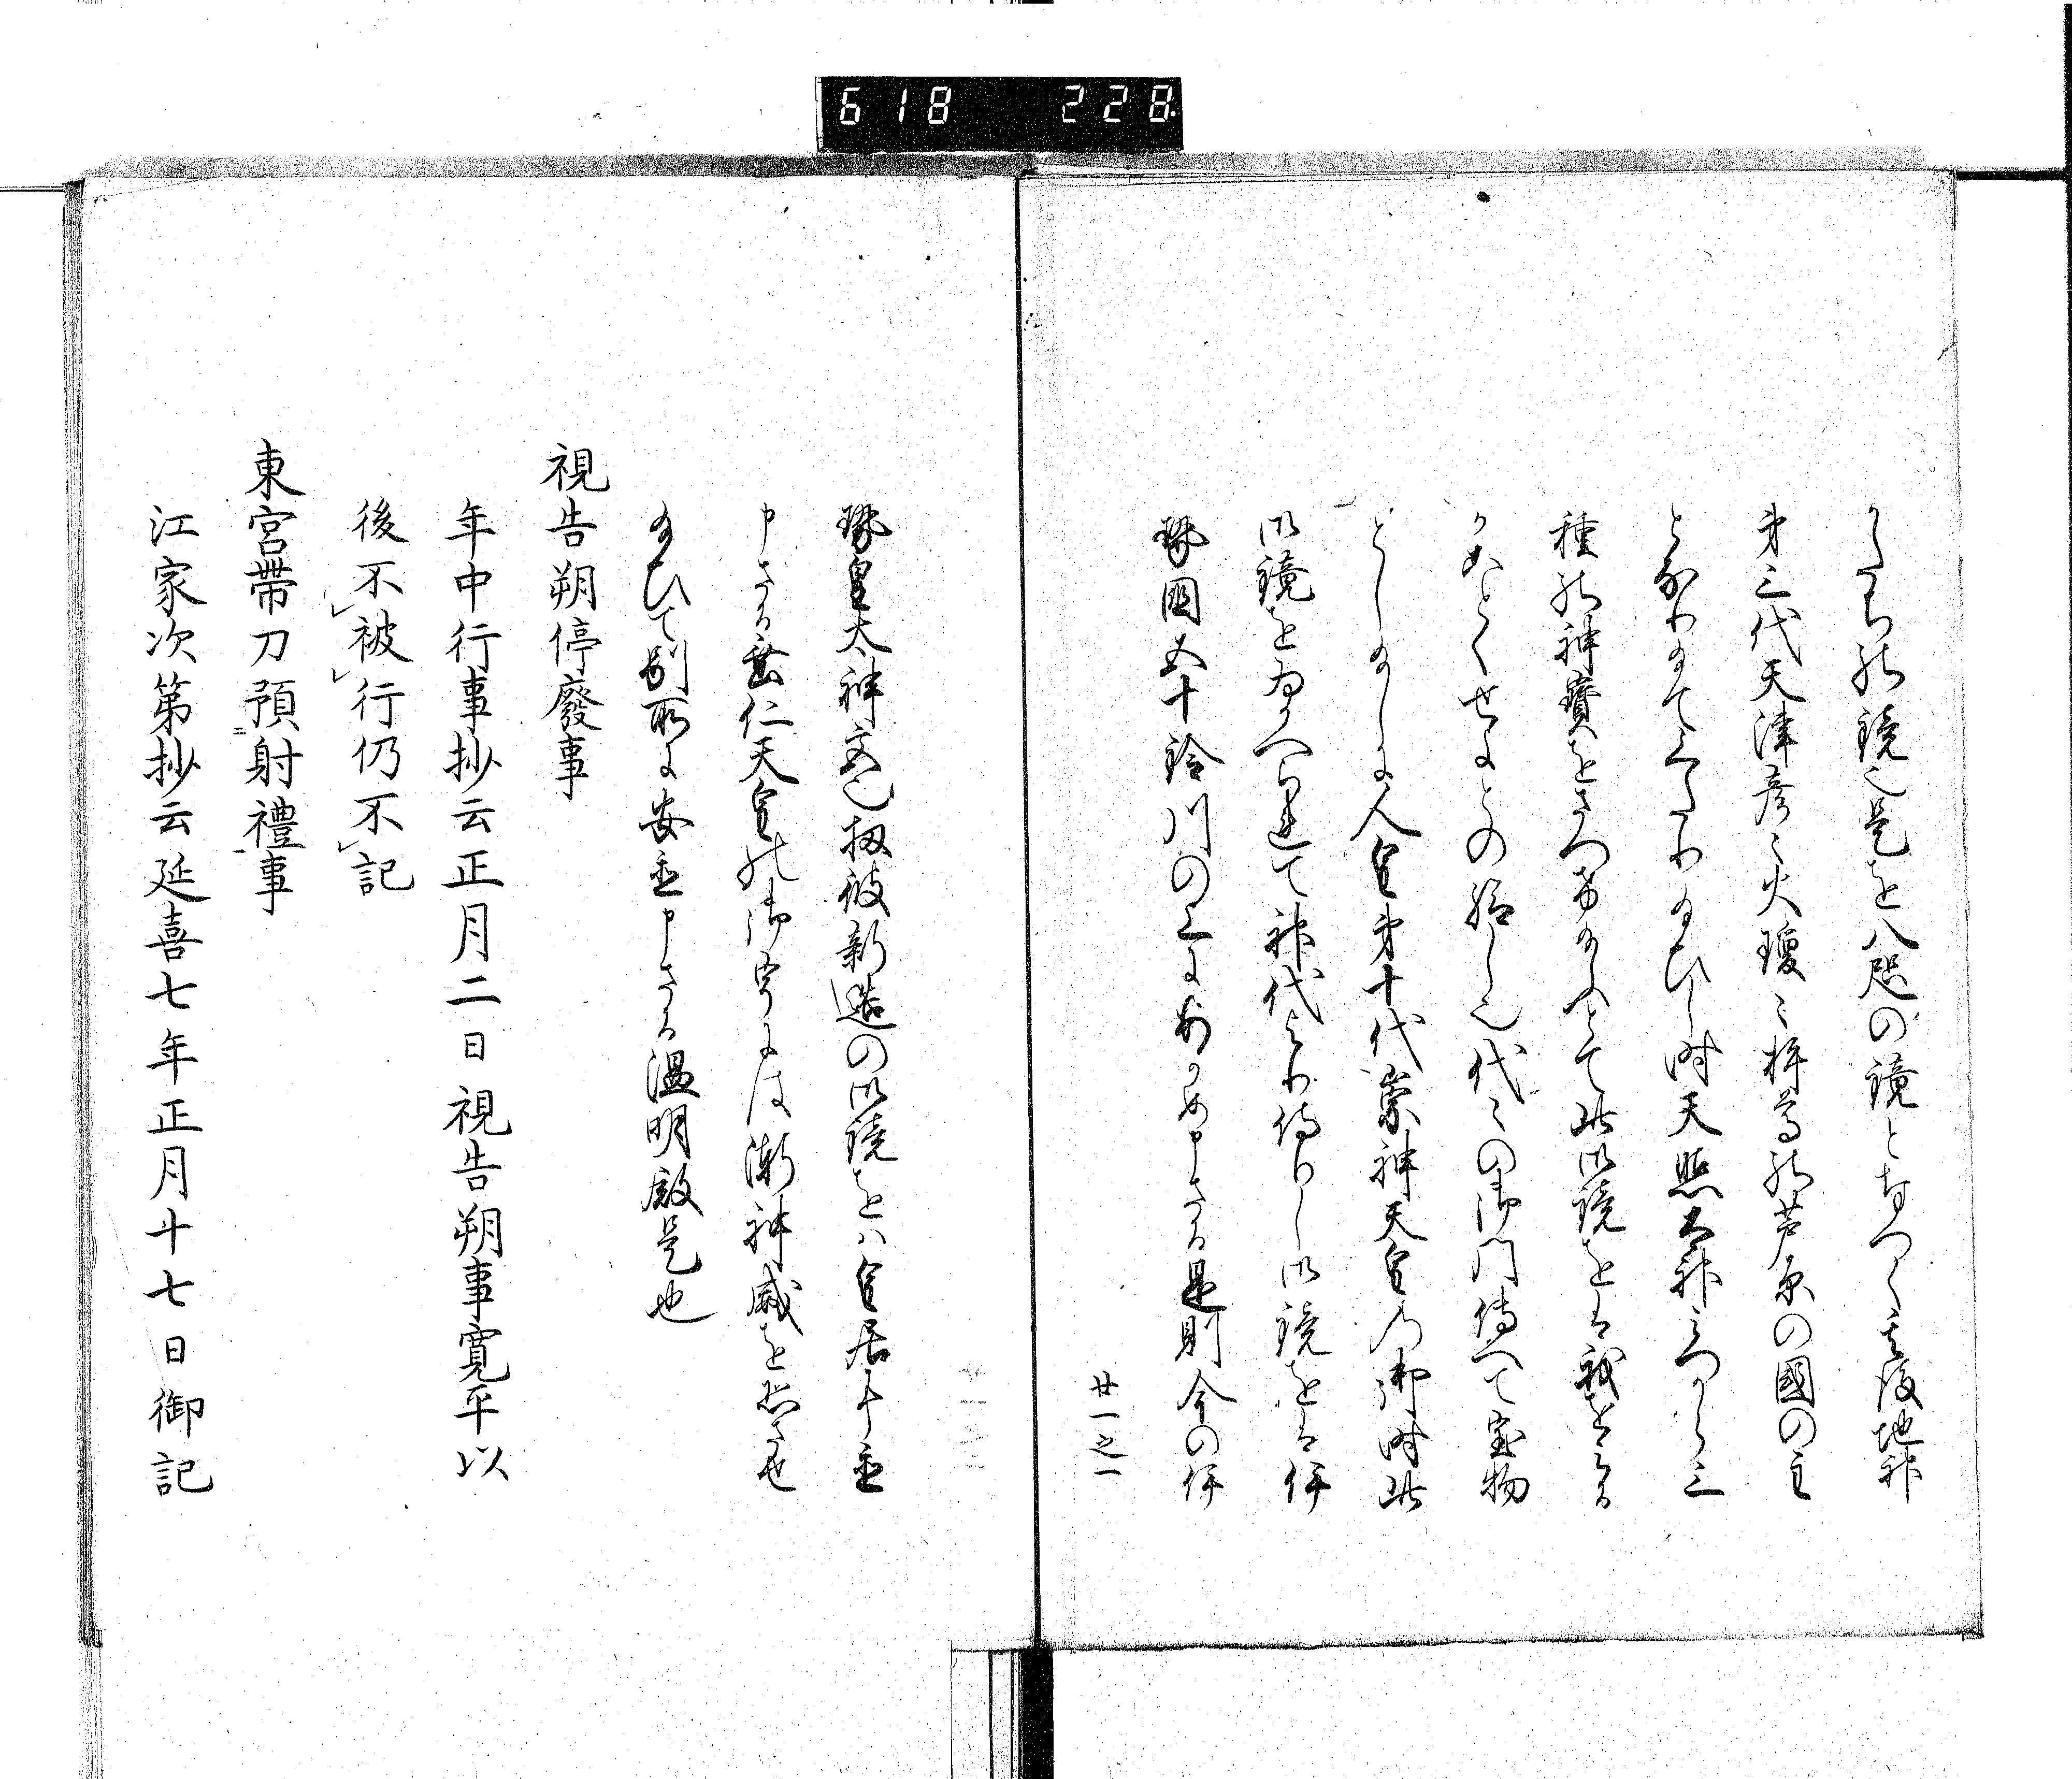 618 228
かたち能鏡也是を八咫の鏡となつく其後地神
第三代天津彦々火瓊々杵尊能芦原の國の主
となりましてくたり給ひし時天照大神みつから三
種能神寶をさつけ給ふとて此御鏡をは我をみる
ことくせよとの給し也代々の御門傳へて宝物
としましに人皇第十代崇神天皇乃御時此
御鏡をゐかへられて神代より傳りし御鏡をは伊
勢國五十鈴川の上にあかめ申さる是則今の伊
廿一之一
勢皇太神宮也扨彼新造の御鏡をハ皇居に安置
申さる垂仁天皇能御宇には漸神威を恐させ
給ひて別所に安置申さる温明殿是也
視告朔停廢事
年中行事抄云正月二日視告朔事寛平以
後不被行仍不記
東宮帶刀預射禮事
江家次第抄云延喜七年正月十七日御記